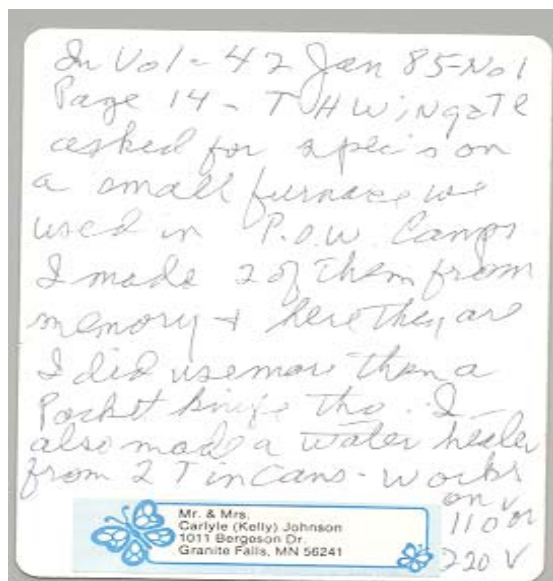 In Vol - 42 Jan 85-No1
Page 14 - T H Wingate
asked for spec's on
a small furnace we
used in P.O.W. Camps
I made 2 of them from
memory & here they are
I did use more than a
Pocket knife tho. I
also made a water heater
from 2 Tin Cans - works
on
110 or
220 V
Mr. & Mrs.
Carlyle (Kelly) Johnson
1011 Bergeson Dr.
Granite Falls, MN 56241